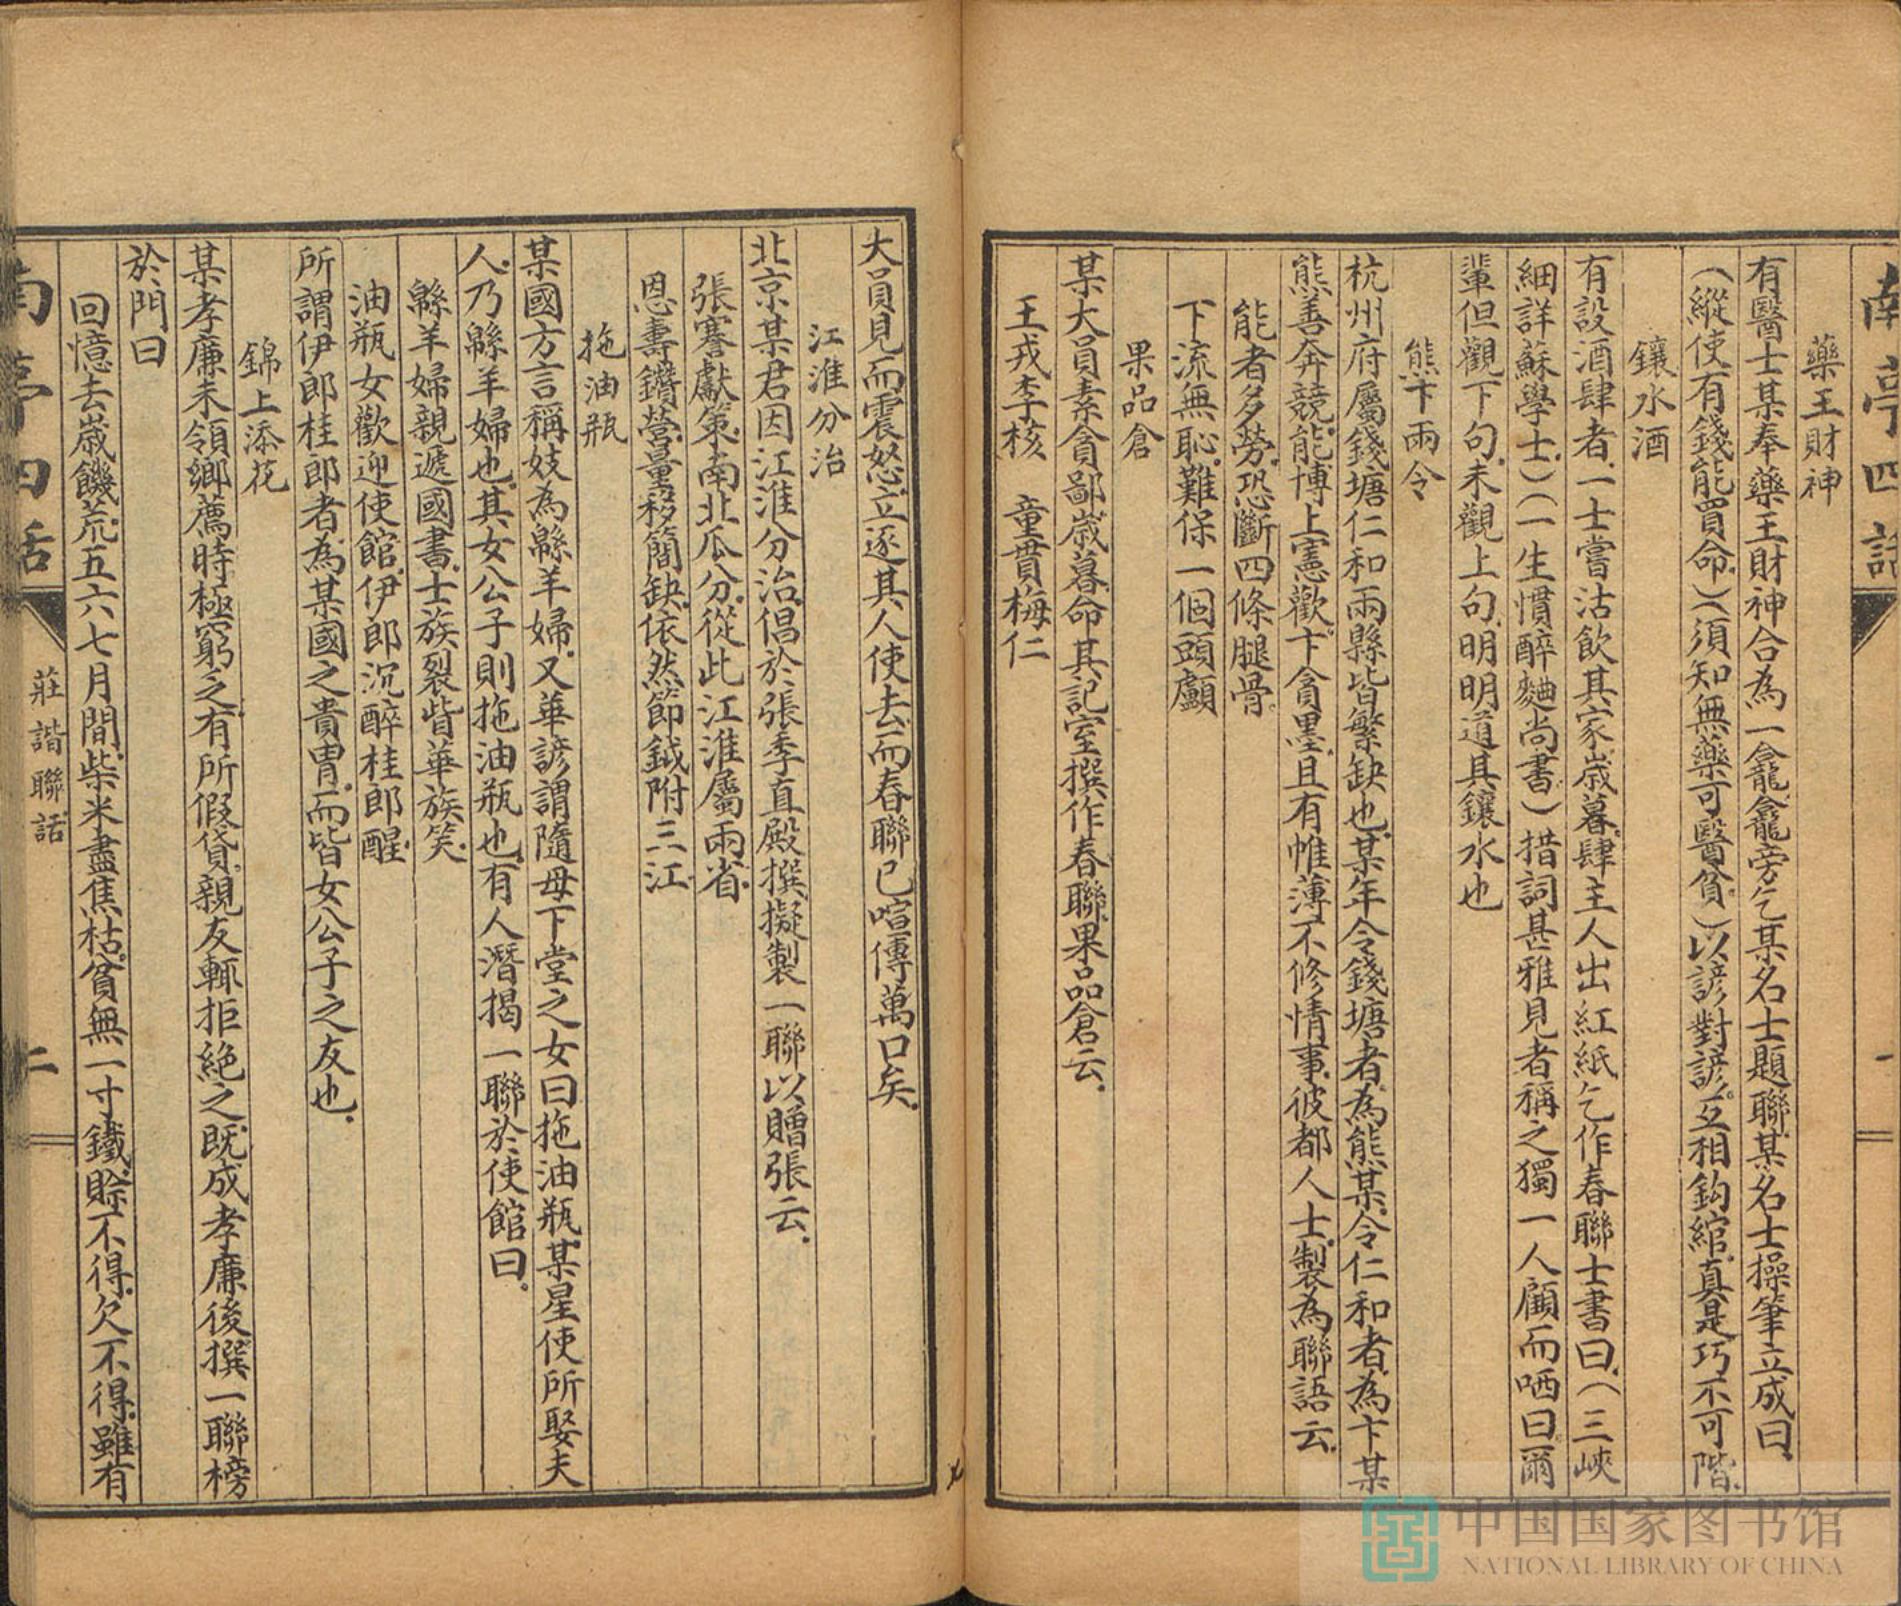 南亭四話
一
藥王財神
有醫士某奉藥王財神合為一龕龕旁乞某名士題聯某名士操筆立成曰
（縱使有錢能買命）（須知無藥可醫貧）以諺對諺互相鈎綰真是巧不可階
鑲水酒
有設酒肆者一士嘗沽飲其家歲暮肆主人出紅紙乞作春聯士書曰（三峽
細詳蘇學士）（一生慣醉麯尚書）措詞甚雅見者稱之獨一人顧而哂曰爾
輩但觀下句未觀上句明明道其鑲水也
熊卞兩令
杭州府屬錢塘仁和兩縣皆繁缺也某年令錢塘者為熊某令仁和者為卞某
熊善奔競能博上憲歡卞貪墨且有帷薄不修情事彼都人士製為聯語云
能者多勞恐斷四條腿骨
下流無恥難保一個頭顱
果品倉
某大員素貪鄙歲暮命其記室撰作春聯果品倉云
王戎李核　童貫梅仁
大員見而震怒立逐其人使去而春聯已喧傳萬口矣
江淮分治
北京某君因江淮分治倡於張季直殿撰擬製一聯以贈張云
張謇獻策南北瓜分從此江淮屬兩省
恩壽鑽營量移簡缺依然節鉞附三江
拖油瓶
某國方言稱妓為緜羊婦又華諺謂隨母下堂之女曰拖油瓶某星使所娶夫
人乃緜羊婦也其女公子則拖油瓶也有人潛揭一聯於使館曰
緜羊婦親遞國書士族裂眥華族笑
油瓶女歡迎使館伊郎沉醉桂郎醒
所謂伊郎桂郎者為某國之貴冑而皆女公子之友也
錦上添花
某孝廉未領鄉薦時極窮之有所假貸親友輒拒絕之既成孝廉後撰一聯榜
於門曰
回憶去歲饑荒五六七月間柴米盡焦枯貧無一寸鐵賒不得欠不得雖有
南亭四話
莊諧聯話
二
中国国家图书馆
NATIONAL LIBRARY OF CHINA